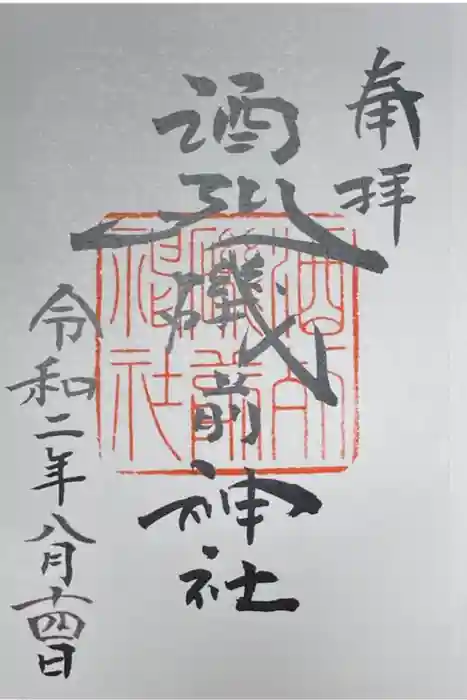 奉拝
酒列磯前神社
酒列
磯前
神社
令和二年八月十四日